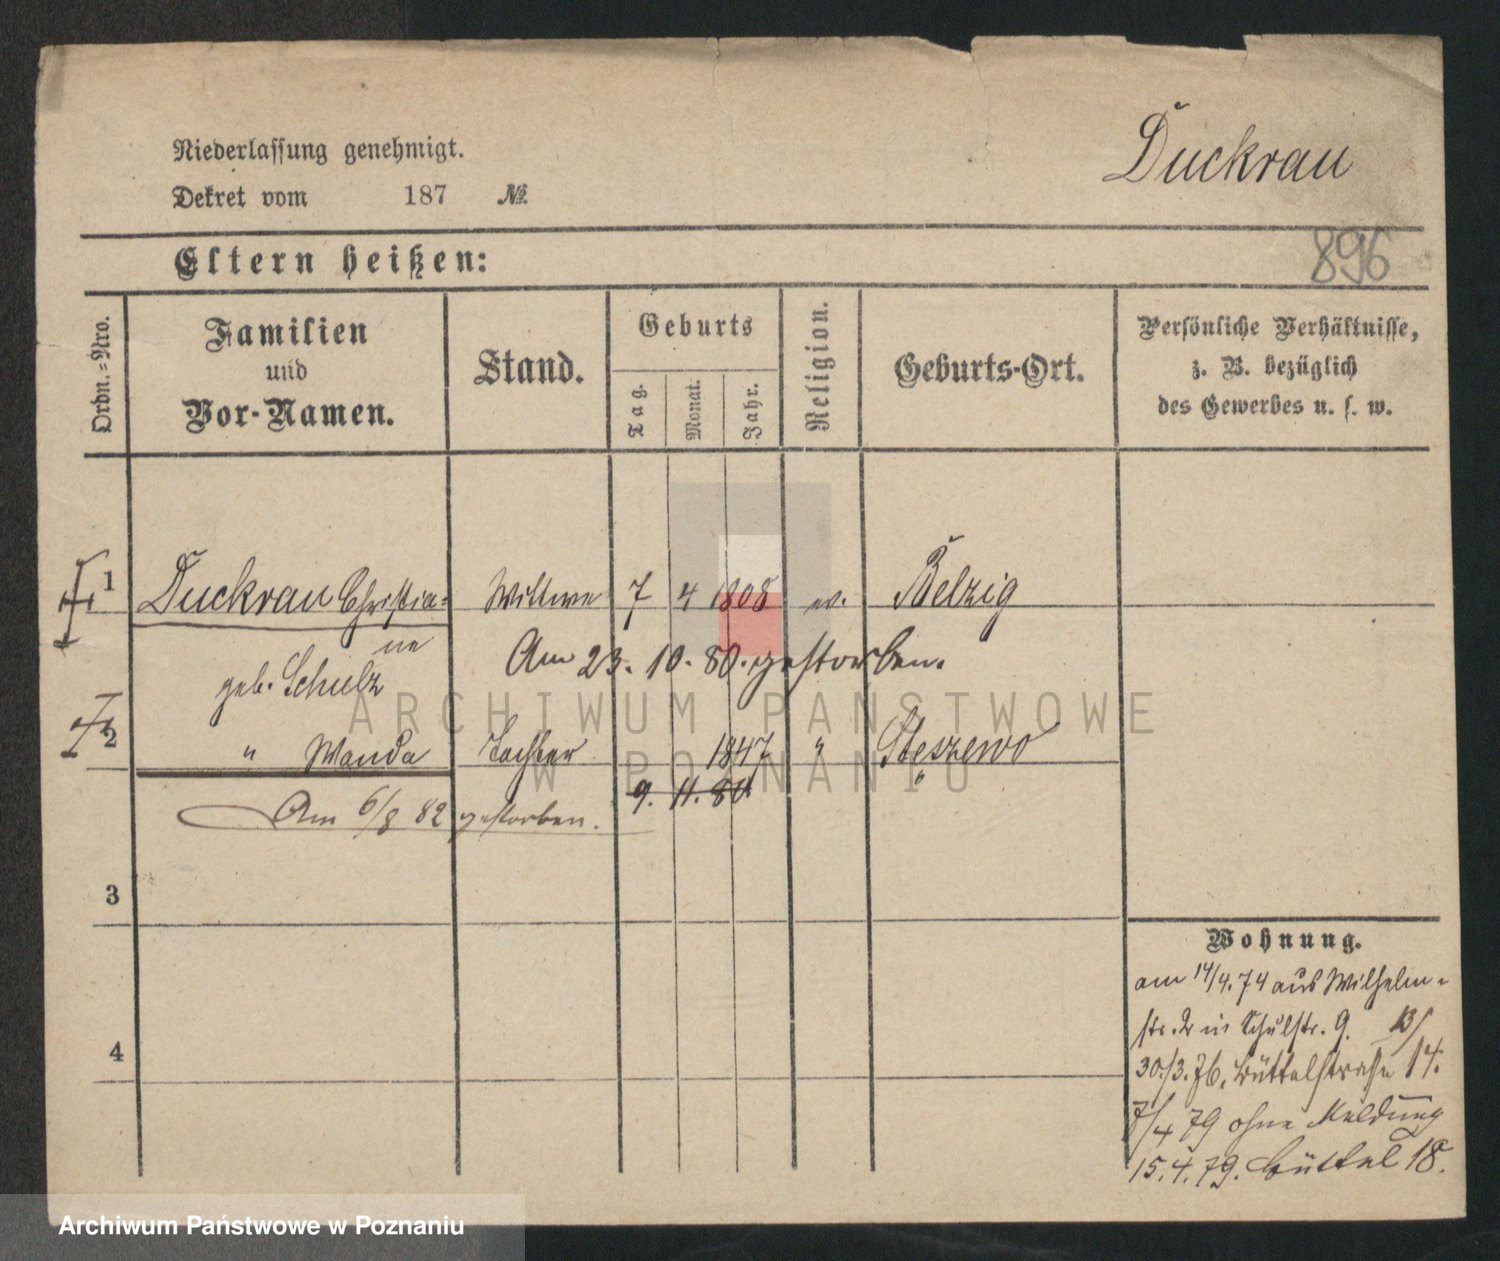 Duckrau
Niederlassung genehmigt.
Dekret vom 187 №
896
Eltern heißen:
Ordn.=Nro.
Familien
und
Vor-Namen.
Stand.
Geburts
Tag.
Monat.
Jahr.
Religion.
Geburts-Ort.
Persönliche Verhältnisse,
z. B. bezüglich
des Gewerbes u. s. w.
1 Duckrau Christia= Wittwe 7 4 1808 ev. Belzig
ne
geb. Schulz
Am 23. 10. 80. gestorben.
2 " Wanda Tochter 1847 " Stęszewo
9. 11. 80.
Am 6/8 82 gestorben.
3
4
Wohnung.
am 14/4.74 aus Wilhelm=
str. 2 in Schulstr. 9. 13/
30/3.76. Büttelstraße 14.
7/4 79 ohne Meldung
15.4.79. Büttel 18.
ARCHIWUM PAŃSTWOWE
W POZNANIU
Archiwum Państwowe w Poznaniu